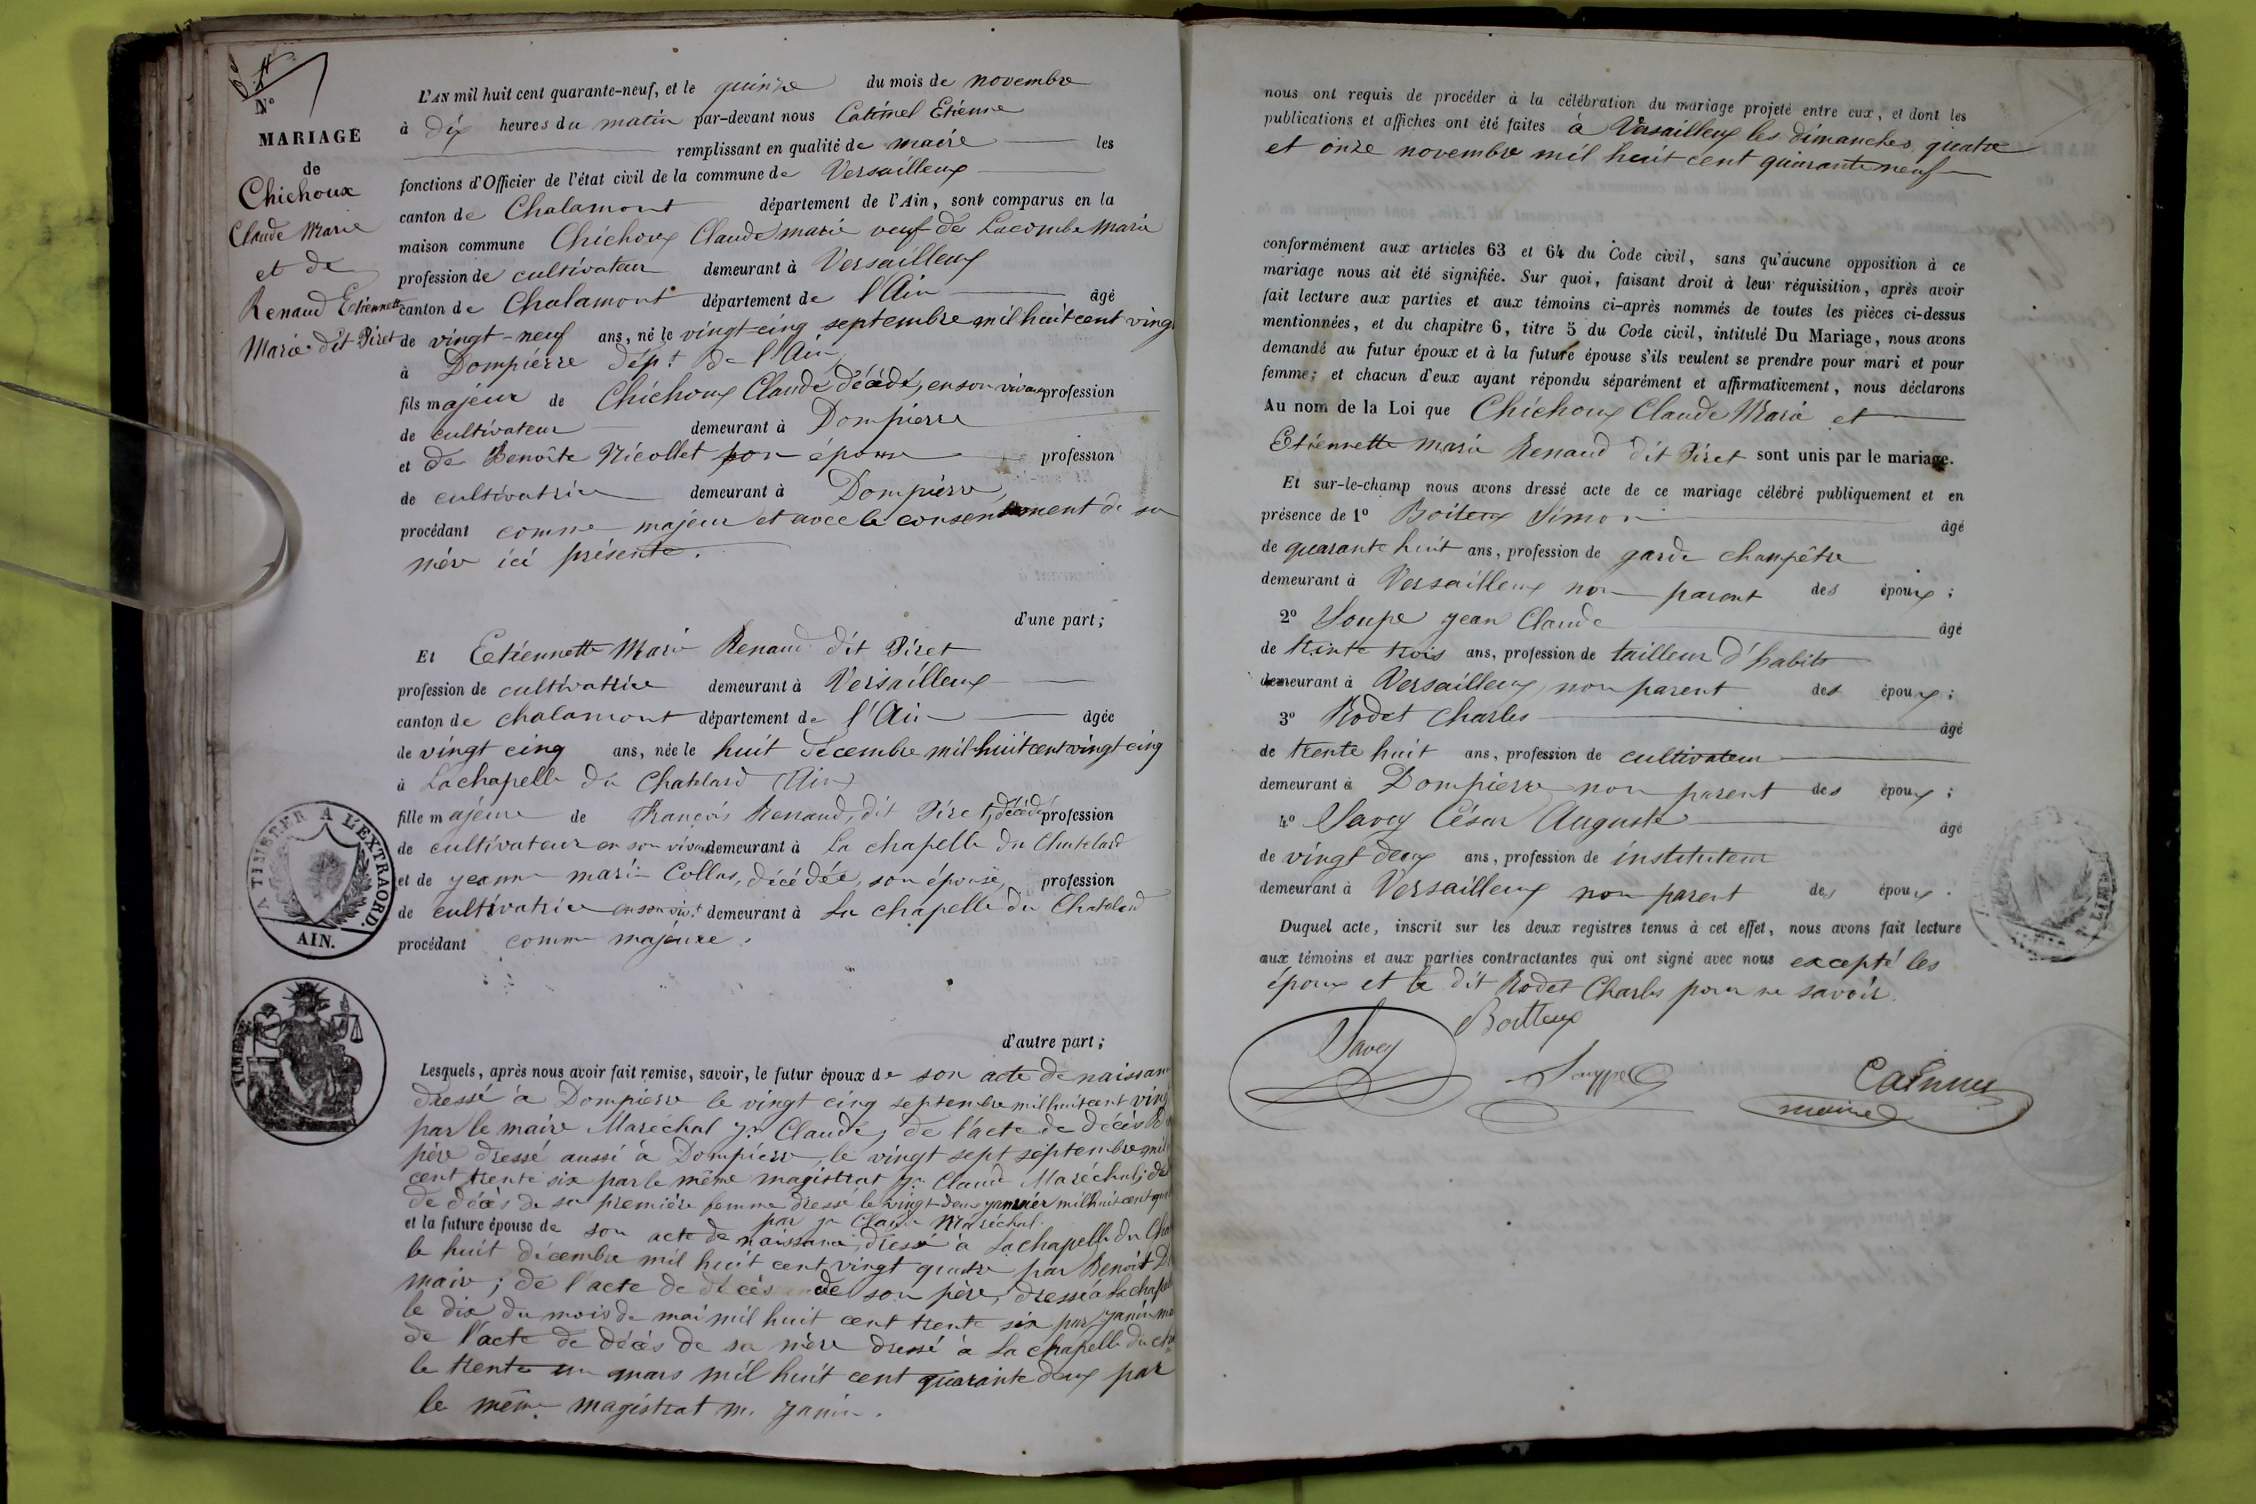 N°
MARIAGE
de
Chichoux
Claude Marie
et de
Renaud Etiennette
Marie dit Piret
L'AN mil huit cent quarante-neuf, et le quinze du mois de novembre
à dix heures du matin par-devant nous Catimel Etienne
remplissant en qualité de maire les
fonctions d'Officier de l'état civil de la commune de Versailleux
canton de Chalamont département de l'Ain, sont comparus en la
maison commune Chichoux Claude marie veuf de Lacombe Marie
profession de cultivateur demeurant à Versailleux
canton de Chalamont département de l'Ain âgé
de vingt-neuf ans, né le vingt-cinq septembre mil huit cent vingt
à Dompierre dépt de l'Ain
fils majeur de Chichoux Claude décédé, en son vivant profession
de cultivateur demeurant à Dompierre
et de Benoîte Nicollet son épouse profession
de cultivatrice demeurant à Dompierre
procédant comme majeur et avec le consentement de sa
mère ici présente.
d'une part;
Et Etiennette Marie Renaud dit Piret
profession de cultivatrice demeurant à Versailleux
canton de chalamont département de l'Ain âgée
de vingt cinq ans, née le huit décembre mil huit cent vingt cinq
à Lachapelle du Chatelard (Ain)
fille majeure de François Renaud, dit Piret, décédé profession
de cultivateur en son vivant demeurant à La chapelle du Chatelard
et de jeanne marie Collus, décédée, son épouse, profession
de cultivatrice en son viv.t demeurant à La chapelle du Chatelard
procédant comme majeure.
d'autre part;
Lesquels, après nous avoir fait remise, savoir, le futur époux de son acte de naissan
dressé à Dompierre le vingt cinq septembre mil huit cent ving
par le maire Maréchal jn Claude, de l'acte de décès de
père dressé aussi à Dompierre, le vingt sept septembre mil
cent trente six par le même magistrat jn Claude Maréchal; de
de décès de sa première femme dressé le vingt deux janvier mil huit cent qua
par jn Claude Maréchal.
et la future épouse de son acte de naissance, dressé à Lachapelle du Cha
le huit décembre mil huit cent vingt quatre par Benoît
maire; de l'acte de décès de son père, dressé à Lachapel
le dix du mois de mai mil huit cent trente six par Janin
de l'acte de décès de sa mère dressé à La chapelle du
le trente un mars mil huit cent quarante deux par
le même magistrat m. Janin.
A TIMBRER A L'EXTRAORD.
AIN.
TIMBRE
nous ont requis de procéder à la célébration du mariage projeté entre eux, et dont les
publications et affiches ont été faites à Versailleux les dimanches quatre
et onze novembre mil huit cent quarante neuf
conformément aux articles 63 et 64 du Code civil, sans qu'aucune opposition à ce
mariage nous ait été signifiée. Sur quoi, faisant droit à leur réquisition, après avoir
fait lecture aux parties et aux témoins ci-après nommés de toutes les pièces ci-dessus
mentionnées, et du chapitre 6, titre 5 du Code civil, intitulé Du Mariage, nous avons
demandé au futur époux et à la future épouse s'ils veulent se prendre pour mari et pour
femme; et chacun d'eux ayant répondu séparément et affirmativement, nous déclarons
Au nom de la Loi que Chichoux Claude Marie et
Etiennette marie Renaud dit Piret sont unis par le mariage.
Et sur-le-champ nous avons dressé acte de ce mariage célébré publiquement et en
présence de 1° Boiteux Simon âgé
de quarante huit ans, profession de garde champêtre
demeurant à Versailleux non parent des époux;
2° Soupe jean Claude âgé
de trente trois ans, profession de tailleur d'habits
demeurant à Versailleux non parent des époux;
3° Rodet Charles âgé
de trente huit ans, profession de cultivateur
demeurant à Dompierre non parent des époux;
4° Savey César Auguste âgé
de vingt deux ans, profession de instituteur
demeurant à Versailleux non parent des époux.
Duquel acte, inscrit sur les deux registres tenus à cet effet, nous avons fait lecture
aux témoins et aux parties contractantes qui ont signé avec nous excepté les
époux et le dit Rodet Charles pour ne savoir.
Savey
Boitteux
maire